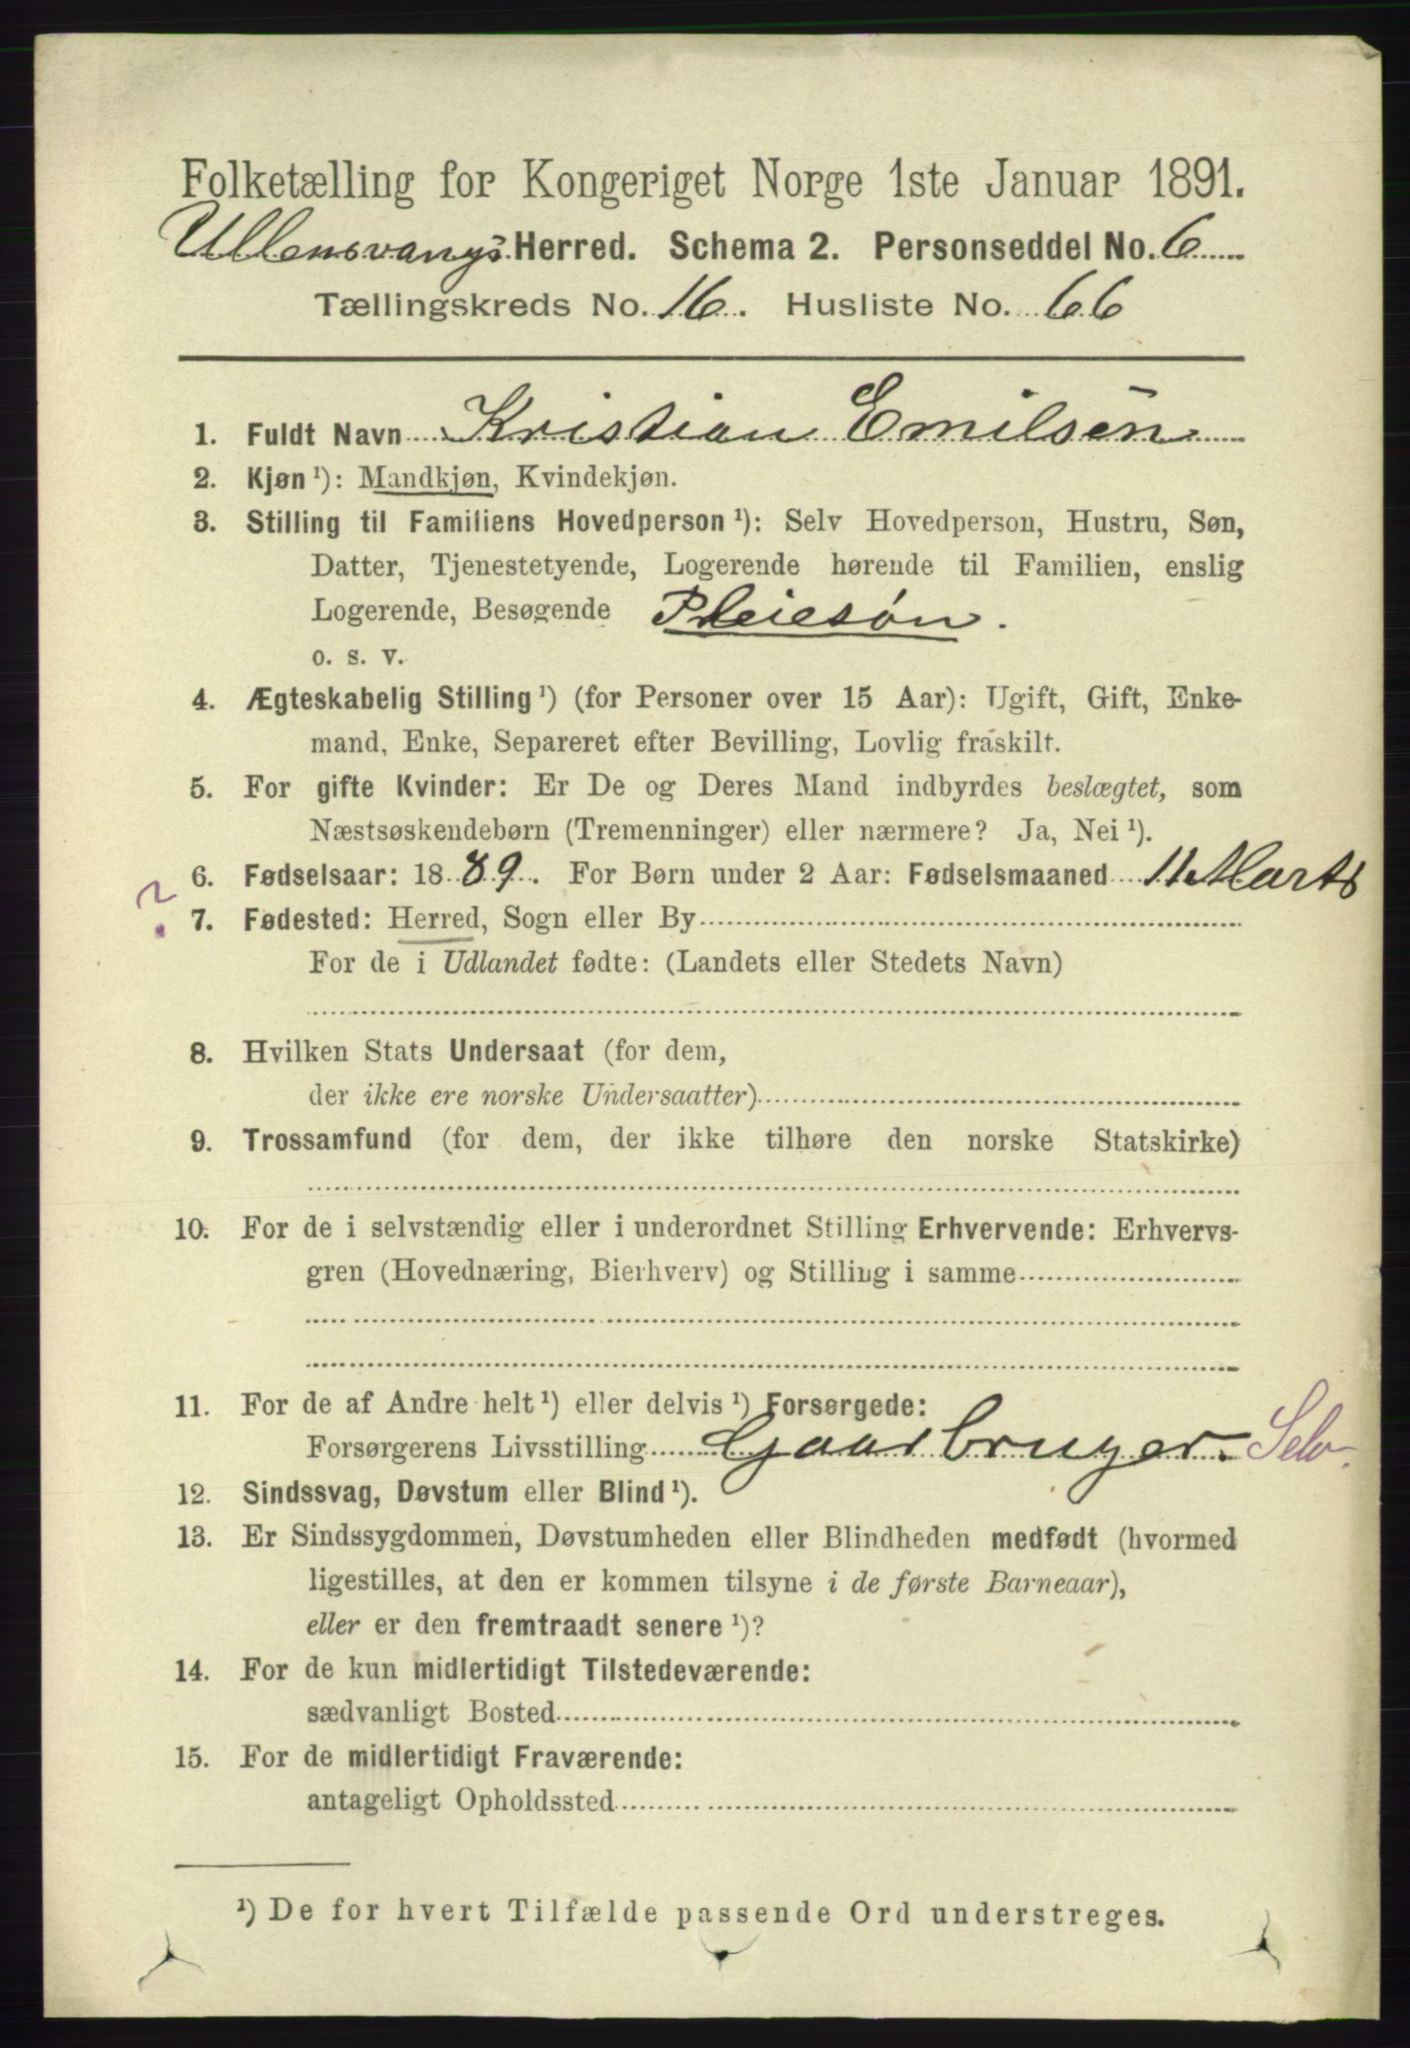 Folketælling for Kongeriget Norge 1ste Januar 1891.
Ullensvangs Herred. Schema 2. Personseddel No. 6
Tællingskreds No. 16. Husliste No. 66
1. Fuldt Navn Kristian Emilsen
2. Kjøn ¹): Mandkjøn, Kvindekjøn.
3. Stilling til Familiens Hovedperson ¹): Selv Hovedperson, Hustru, Søn,
Datter, Tjenestetyende, Logerende hørende til Familien, enslig
Logerende, Besøgende Pleiesøn.
o. s. v.
4. Ægteskabelig Stilling ¹) (for Personer over 15 Aar): Ugift, Gift, Enke-
mand, Enke, Separeret efter Bevilling, Lovlig fraskilt.
5. For gifte Kvinder: Er De og Deres Mand indbyrdes beslægtet, som
Næstsøskendebørn (Tremenninger) eller nærmere? Ja, Nei ¹).
6. Fødselsaar: 1889. For Børn under 2 Aar: Fødselsmaaned 11 Marts
? 7. Fødested: Herred, Sogn eller By
For de i Udlandet fødte: (Landets eller Stedets Navn)
8. Hvilken Stats Undersaat (for dem,
der ikke ere norske Undersaatter)
9. Trossamfund (for dem, der ikke tilhøre den norske Statskirke)
10. For de i selvstændig eller i underordnet Stilling Erhvervende: Erhvervs-
gren (Hovednæring, Bierhverv) og Stilling i samme
11. For de af Andre helt ¹) eller delvis ¹) Forsørgede:
Forsørgerens Livsstilling Gaardbruger. Selv.
12. Sindssvag, Døvstum eller Blind ¹).
13. Er Sindssygdommen, Døvstumheden eller Blindheden medfødt (hvormed
ligestilles, at den er kommen tilsyne i de første Barneaar),
eller er den fremtraadt senere ¹)?
14. For de kun midlertidigt Tilstedeværende:
sædvanligt Bosted
15. For de midlertidigt Fraværende:
antageligt Opholdssted
¹) De for hvert Tilfælde passende Ord understreges.